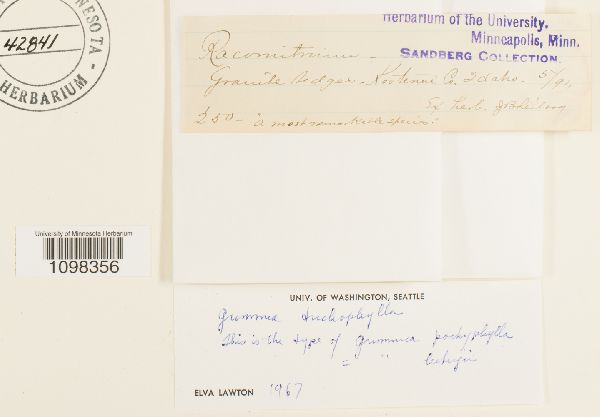 NESOTA
42841
HERBARIUM
Herbarium of the University.
Minneapolis, Minn.
SANDBERG COLLECTION.
Racomitrium -
Granite ledges - Kootenai Co. Idaho. 5/91,
Ex herb. JBLeiberg
250 - "a most remarkable species."
University of Minnesota Herbarium
1098356
UNIV. OF WASHINGTON, SEATTLE
Grimmia trichophylla
This is the type of Grimmia pachyphylla
= " Leibergii
ELVA LAWTON 1967